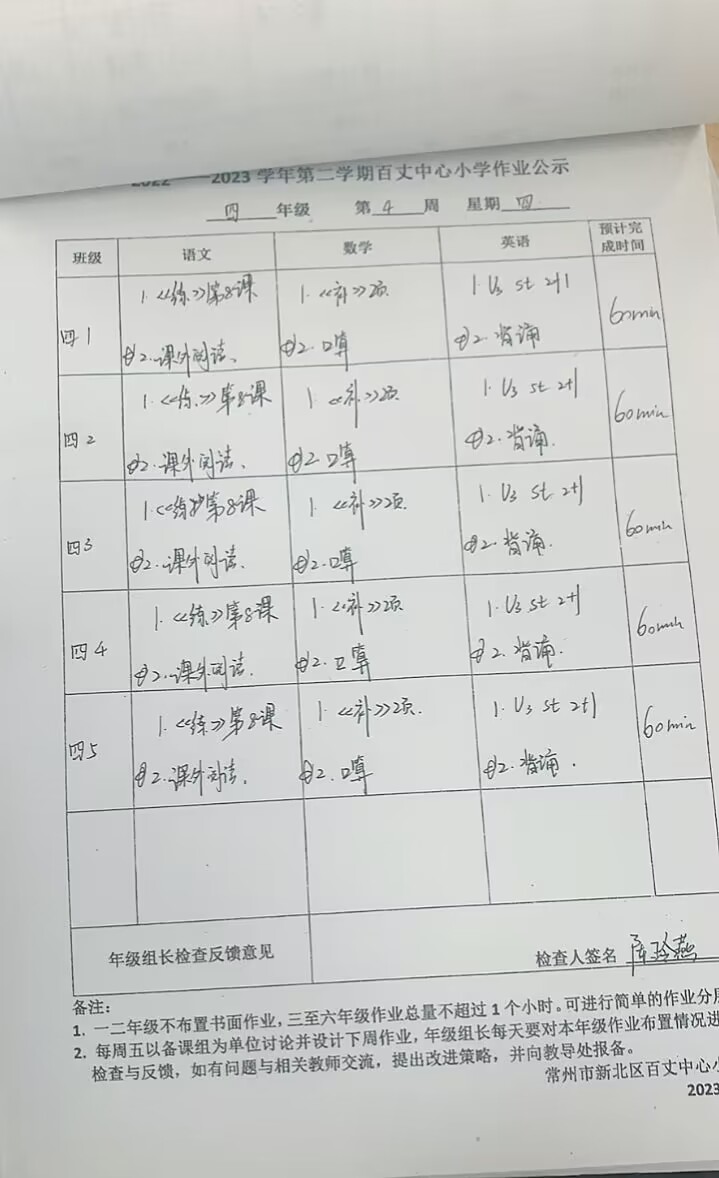 2022——2023 学年第二学期百丈中心小学作业公示
四 年级 第 4 周 星期 四
班级 语文 数学 英语 预计完成时间
四1 1.《练》第8课 1.《补》2项 1. U3 st 2+1 60min
2.课外阅读. 2.口算 2.背诵
四2 1.《练》第8课 1.《补》2项 1. U3 st 2+1 60min
2.课外阅读. 2.口算 2.背诵.
四3 1.《练》第8课 1.《补》2项. 1. U3 st 2+1 60min
2.课外阅读. 2.口算 2.背诵.
四4 1.《练》第8课 1.《补》2项 1. U3 st 2+1 60min
2.课外阅读. 2.口算 2.背诵.
四5 1.《练》第8课 1.《补》2项. 1. U3 st 2+1 60min
2.课外阅读. 2.口算 2.背诵.
年级组长检查反馈意见 检查人签名 玲燕
备注:
1. 一二年级不布置书面作业，三至六年级作业总量不超过 1 个小时。可进行简单的作业分层
2. 每周五以备课组为单位讨论并设计下周作业，年级组长每天要对本年级作业布置情况进
检查与反馈，如有问题与相关教师交流，提出改进策略，并向教导处报备。
常州市新北区百丈中心小
2023